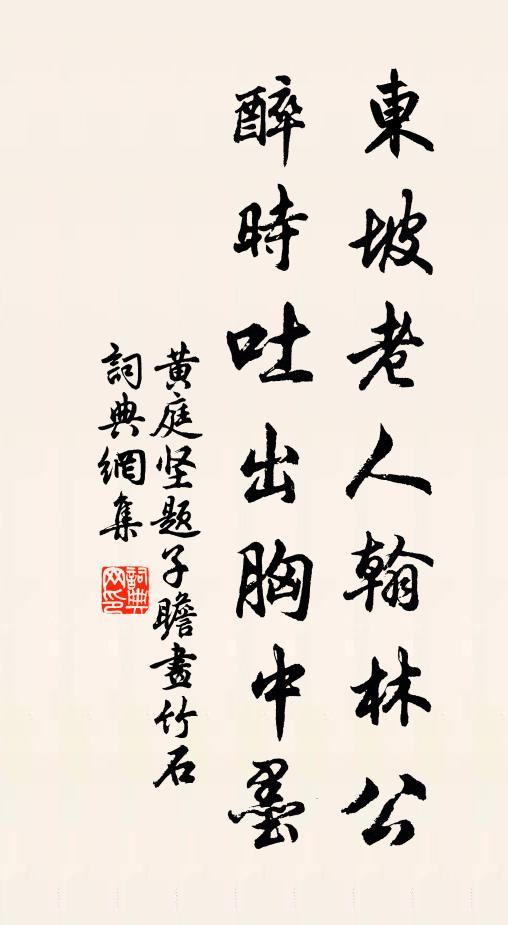 東坡老人翰林公
醉時吐出胸中墨
黄庭坚题子瞻畫竹石
詞典網集
詞典网印